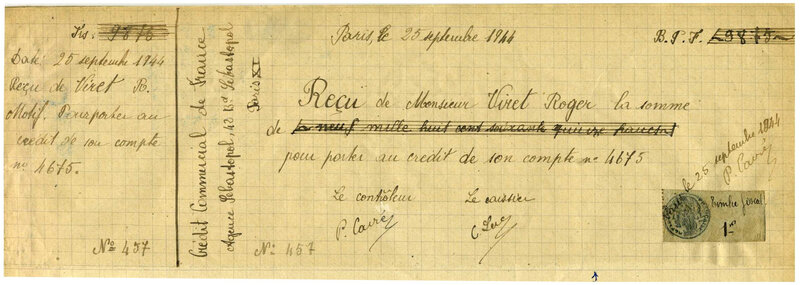 Frs: 9875
Date, 25 septembre 1944
Reçu de Viret R.
Motif. Pour porter au
crédit de son compte
nº 4675.
Nº 457
Crédit Commercial de France
Agence Sébastopol 42 Bd Sébastopol
Paris XI
Paris, le 25 septembre 1944
B.P.F. 9875
Reçu de Monsieur Viret Roger la somme
de neuf mille huit cent soixante quinze francs
pour porter au crédit de son compte nº 4675
Le contrôleur Le caissier
P. Cairé
Nº 457
le 25 septembre 1944
P. Cairé
Timbre fiscal